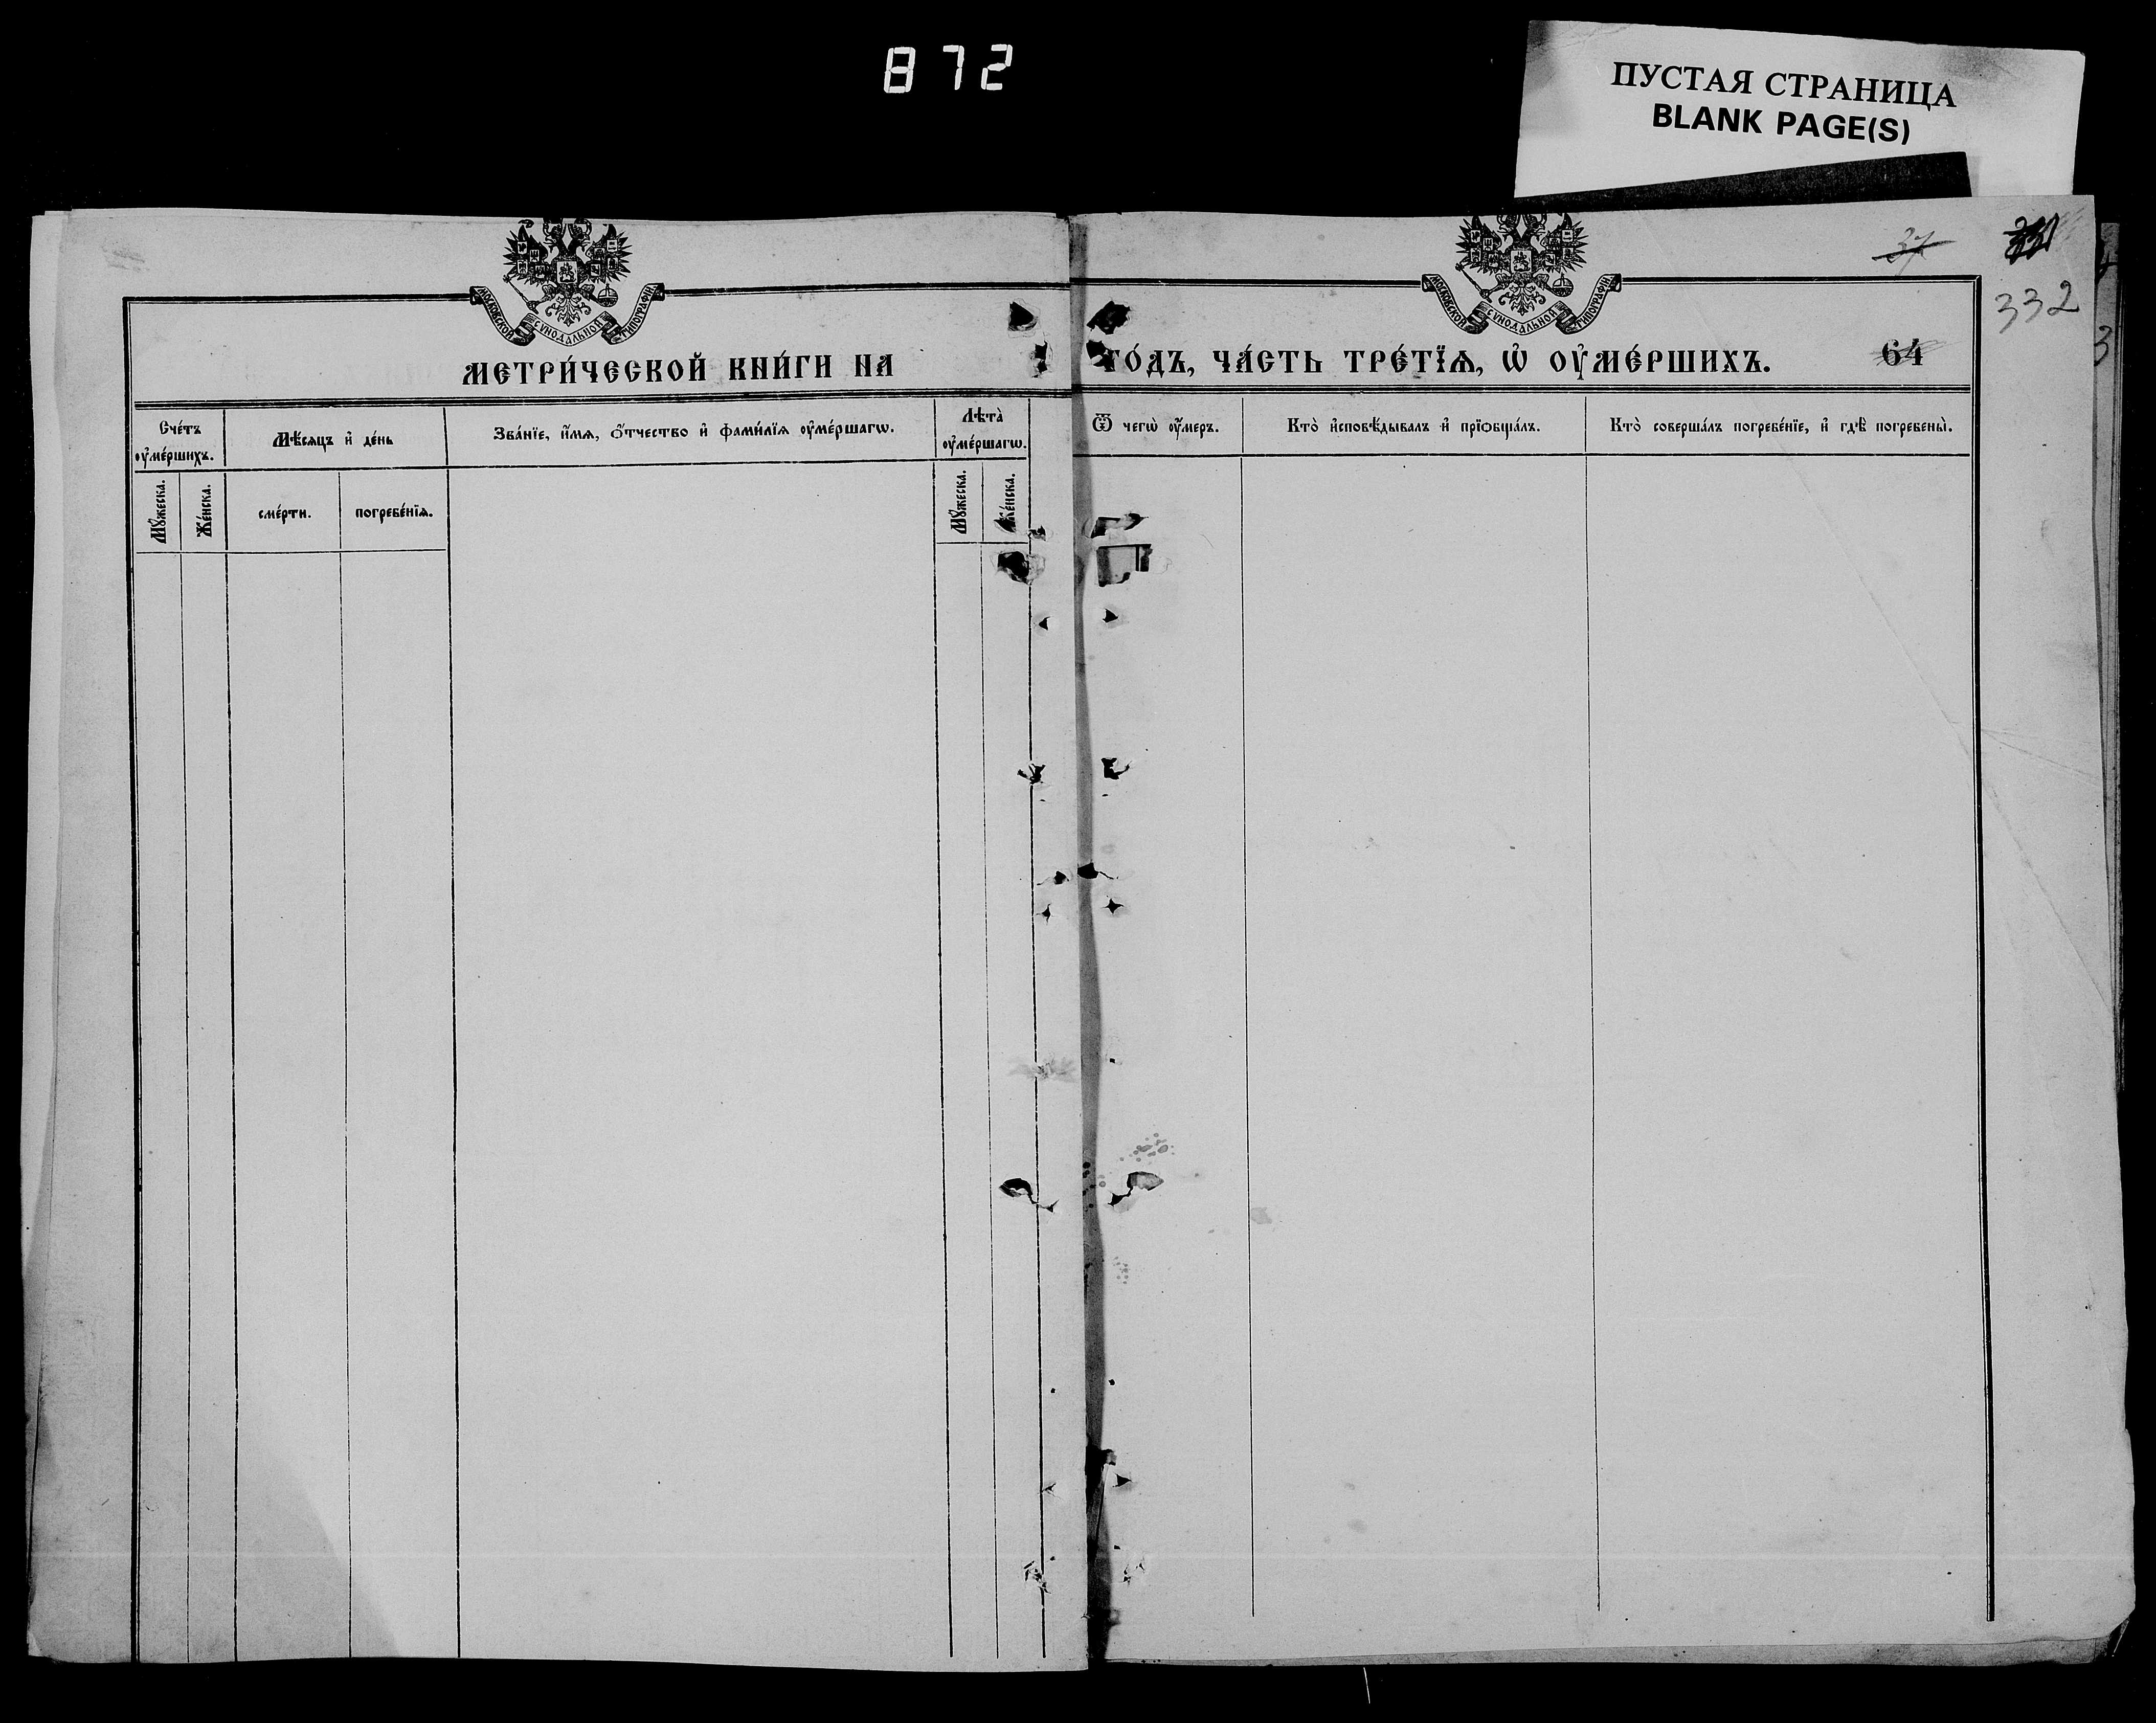 872
ПУСТАЯ СТРАНИЦА
BLANK PAGE(S)
МОСКОВСКОЙ СѴНОДАЛЬНОЙ ТИПОГРАФІИ
МОСКОВСКОЙ СѴНОДАЛЬНОЙ ТИПОГРАФІИ
37
332
МЕТРИ́ЧЕСКОЙ КНИ́ГИ НА
ГО́ДЪ, ЧА́СТЬ ТРЕ́ТЇѦ, Ѡ҆ ОУ҆МЕ́РШИХЪ.
64
Сче́тъ оу҆ме́ршихъ.
Мѣ́сяцъ и҆ де́нь
Зва́нїе, и҆́мя, ѻ҆́тчество и҆ фами́лїя оу҆ме́ршагѡ.
Лѣта̀ оу҆ме́ршагѡ.
Ѿ чегѡ̀ оу҆́меръ.
Кто̀ и҆сповѣ́дывалъ и҆ прїѻбща́лъ.
Кто̀ соверша́лъ погребе́нїе, и҆ гдѣ̀ погребены̀.
Мꙋ́жеска.
Же́нска.
сме́рти.
погребе́нїя.
Мꙋ́жеска.
Же́нска.